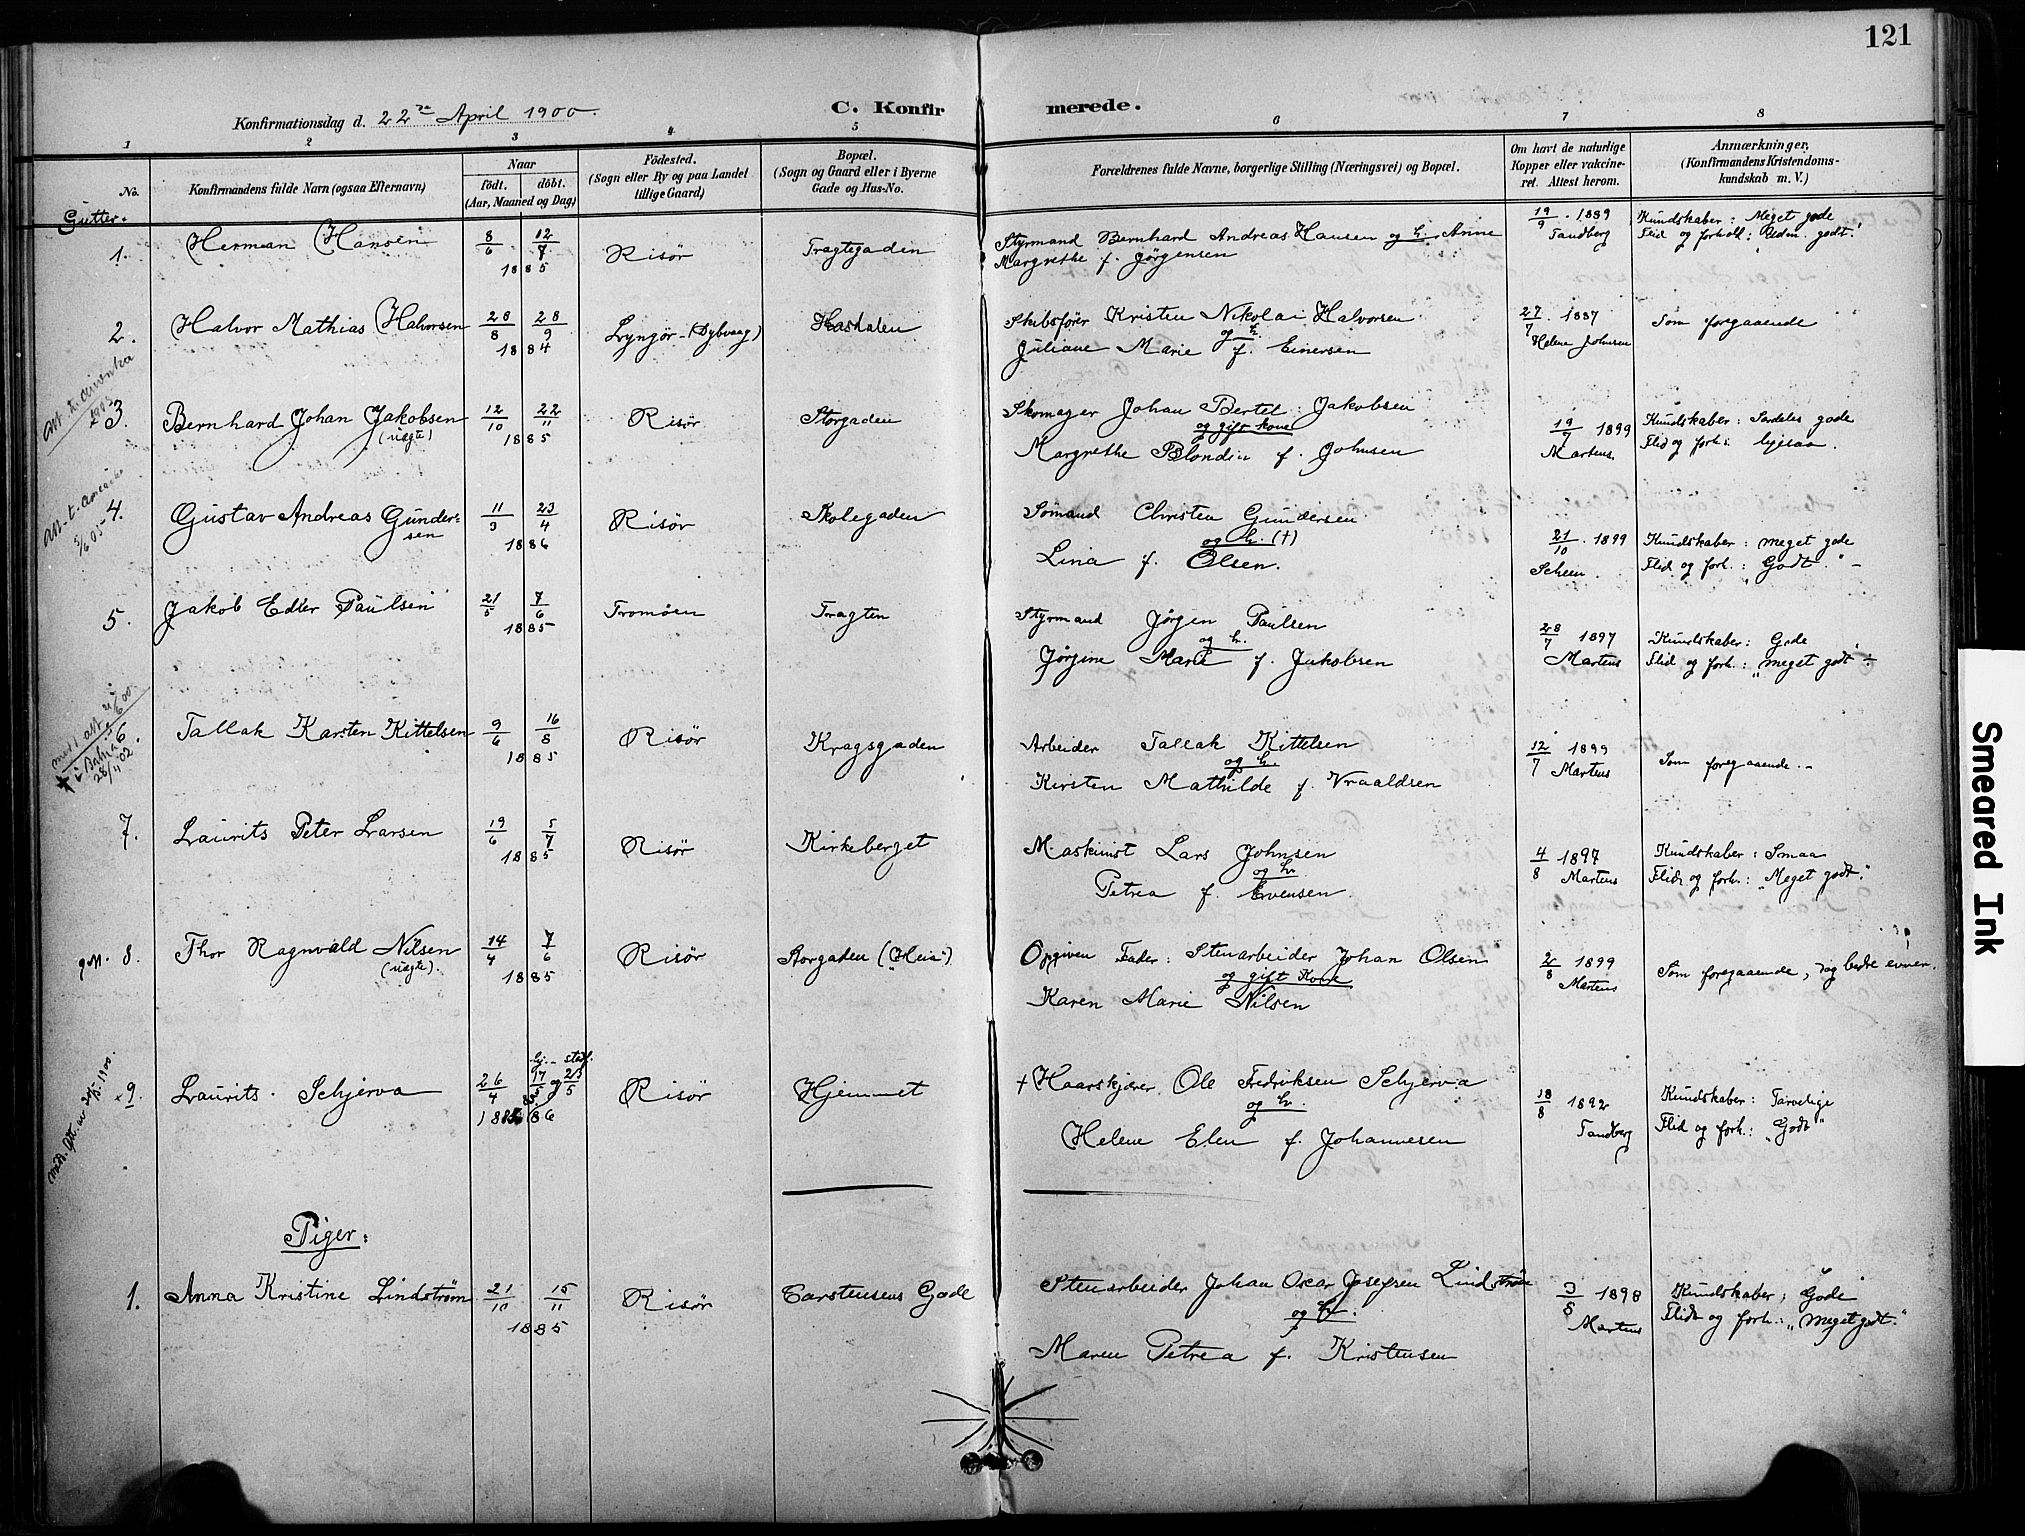 121
Konfirmationsdag d. 22de April 1900.
C. Konfirmerede.
1 2 3 4 5 6 7 8
No.
Konfirmandens fulde Navn (ogsaa Efternavn)
Naar
födt. döbt.
(Aar, Maaned og Dag)
Födested.
(Sogn eller By og paa Landet
tillige Gaard)
Bopæl.
(Sogn og Gaard eller i Byerne
Gade og Hus-No.
Forældrenes fulde Navne, borgerlige Stilling (Næringsvei) og Bopæl.
Om havt de naturlige
Kopper eller vakcine-
ret. Attest herom.
Anmærkninger,
(Konfirmandens Kristendoms-
kundskab m. V.)
Gutter.
1. Herman Hansen 8/6 12/7 1885 Risør Tragtegaden
Styrmand Bernhard Andreas Hansen og h. Anne
Margrethe f. Jørgensen
19/9 1889 Tandberg
Kundskaber: Meget gode
Flid og forhold: Udm. godt.
2. Halvor Mathias Halvorsen 28/8 28/9 1884 Lyngør (Dybvaag) Hasdalen
Skibsfører Kristen Nikolai Halvorsen
og h.
Juliane Marie f. Einersen
27/7 1887 Helene Johnsen
Som foregaaende
3. Bernhard Johan Jakobsen (uægte) 12/10 22/11 1885 Risør Storgaden
Skomager Johan Bertel Jakobsen
og gift kone
Margrethe Blondin f. Johnsen
19/7 1899 Martens
Kundskaber: Særdeles gode
Flid og forh.: ligesaa.
4. Gustav Andreas Gundersen 11/3 23/4 1886 Risør Skolegaden
Sømand Christen Gundersen
og h. (†)
Lina f. Olsen.
21/10 1899 Scheen
Kundskaber: meget gode
Flid og forh.: "Godt."
5. Jakob Edler Paulsen 21/5 7/6 1885 Tromøen Tragten
Styrmand Jørgen Paulsen
og h.
Jørgine Marie f. Jakobsen
28/7 1897 Martens
Kundskaber: Gode
Flid og forh.: "meget godt"
6. Tallak Karsten Kittelsen 9/6 16/8 1885 Risør Kragsgaden
Arbeider Tallak Kittelsen
og h.
Kirsten Mathilde f. Vraaldsen
12/7 1899 Martens
Som foregaaende.
7. Laurits Peter Larsen 19/6 5/7 1885 Risør Kirkeberget
Maskinist Lars Johnsen
og h.
Petrea f. Evensen.
4/8 1897 Martens
Kundskaber: Smaa
Flid og forh.: "Meget godt."
8. Thor Ragnvald Nilsen (uægte) 14/4 7/6 1885 Risør Storgaden ("Heia")
Opgiven Fader: Stenarbeider Johan Olsen
og gift Kone
Karen Marie Nilsen
2/8 1899 Martens
Som foregaaende, dog bedre evner.
9. Laurits Schjerva 26/4 17/5 og 23/5 1886 Risør Hjemmet
† Haarskjærer Ole Fredriksen Schjerva
og h.
Helene Elen f. Johannesen
18/8 1892 Tandberg
Kundskaber: Tarvelige
Flid og forh.: "Godt"
Piger:
1. Anna Kristine Lindstrøm 21/10 15/11 1885 Risør Carstensens Gade
Stenarbeider Johan Oscar Josefsen Lindstrøm
og h.
Maren Petrea f. Kristensen
3/8 1898 Martens
Kundskaber; Gode
Flid og forh.: "Meget godt."
Smeared Ink